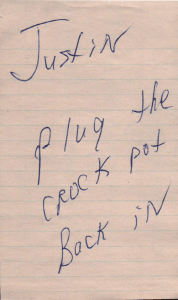 Justin
plug the
crock pot
Back in